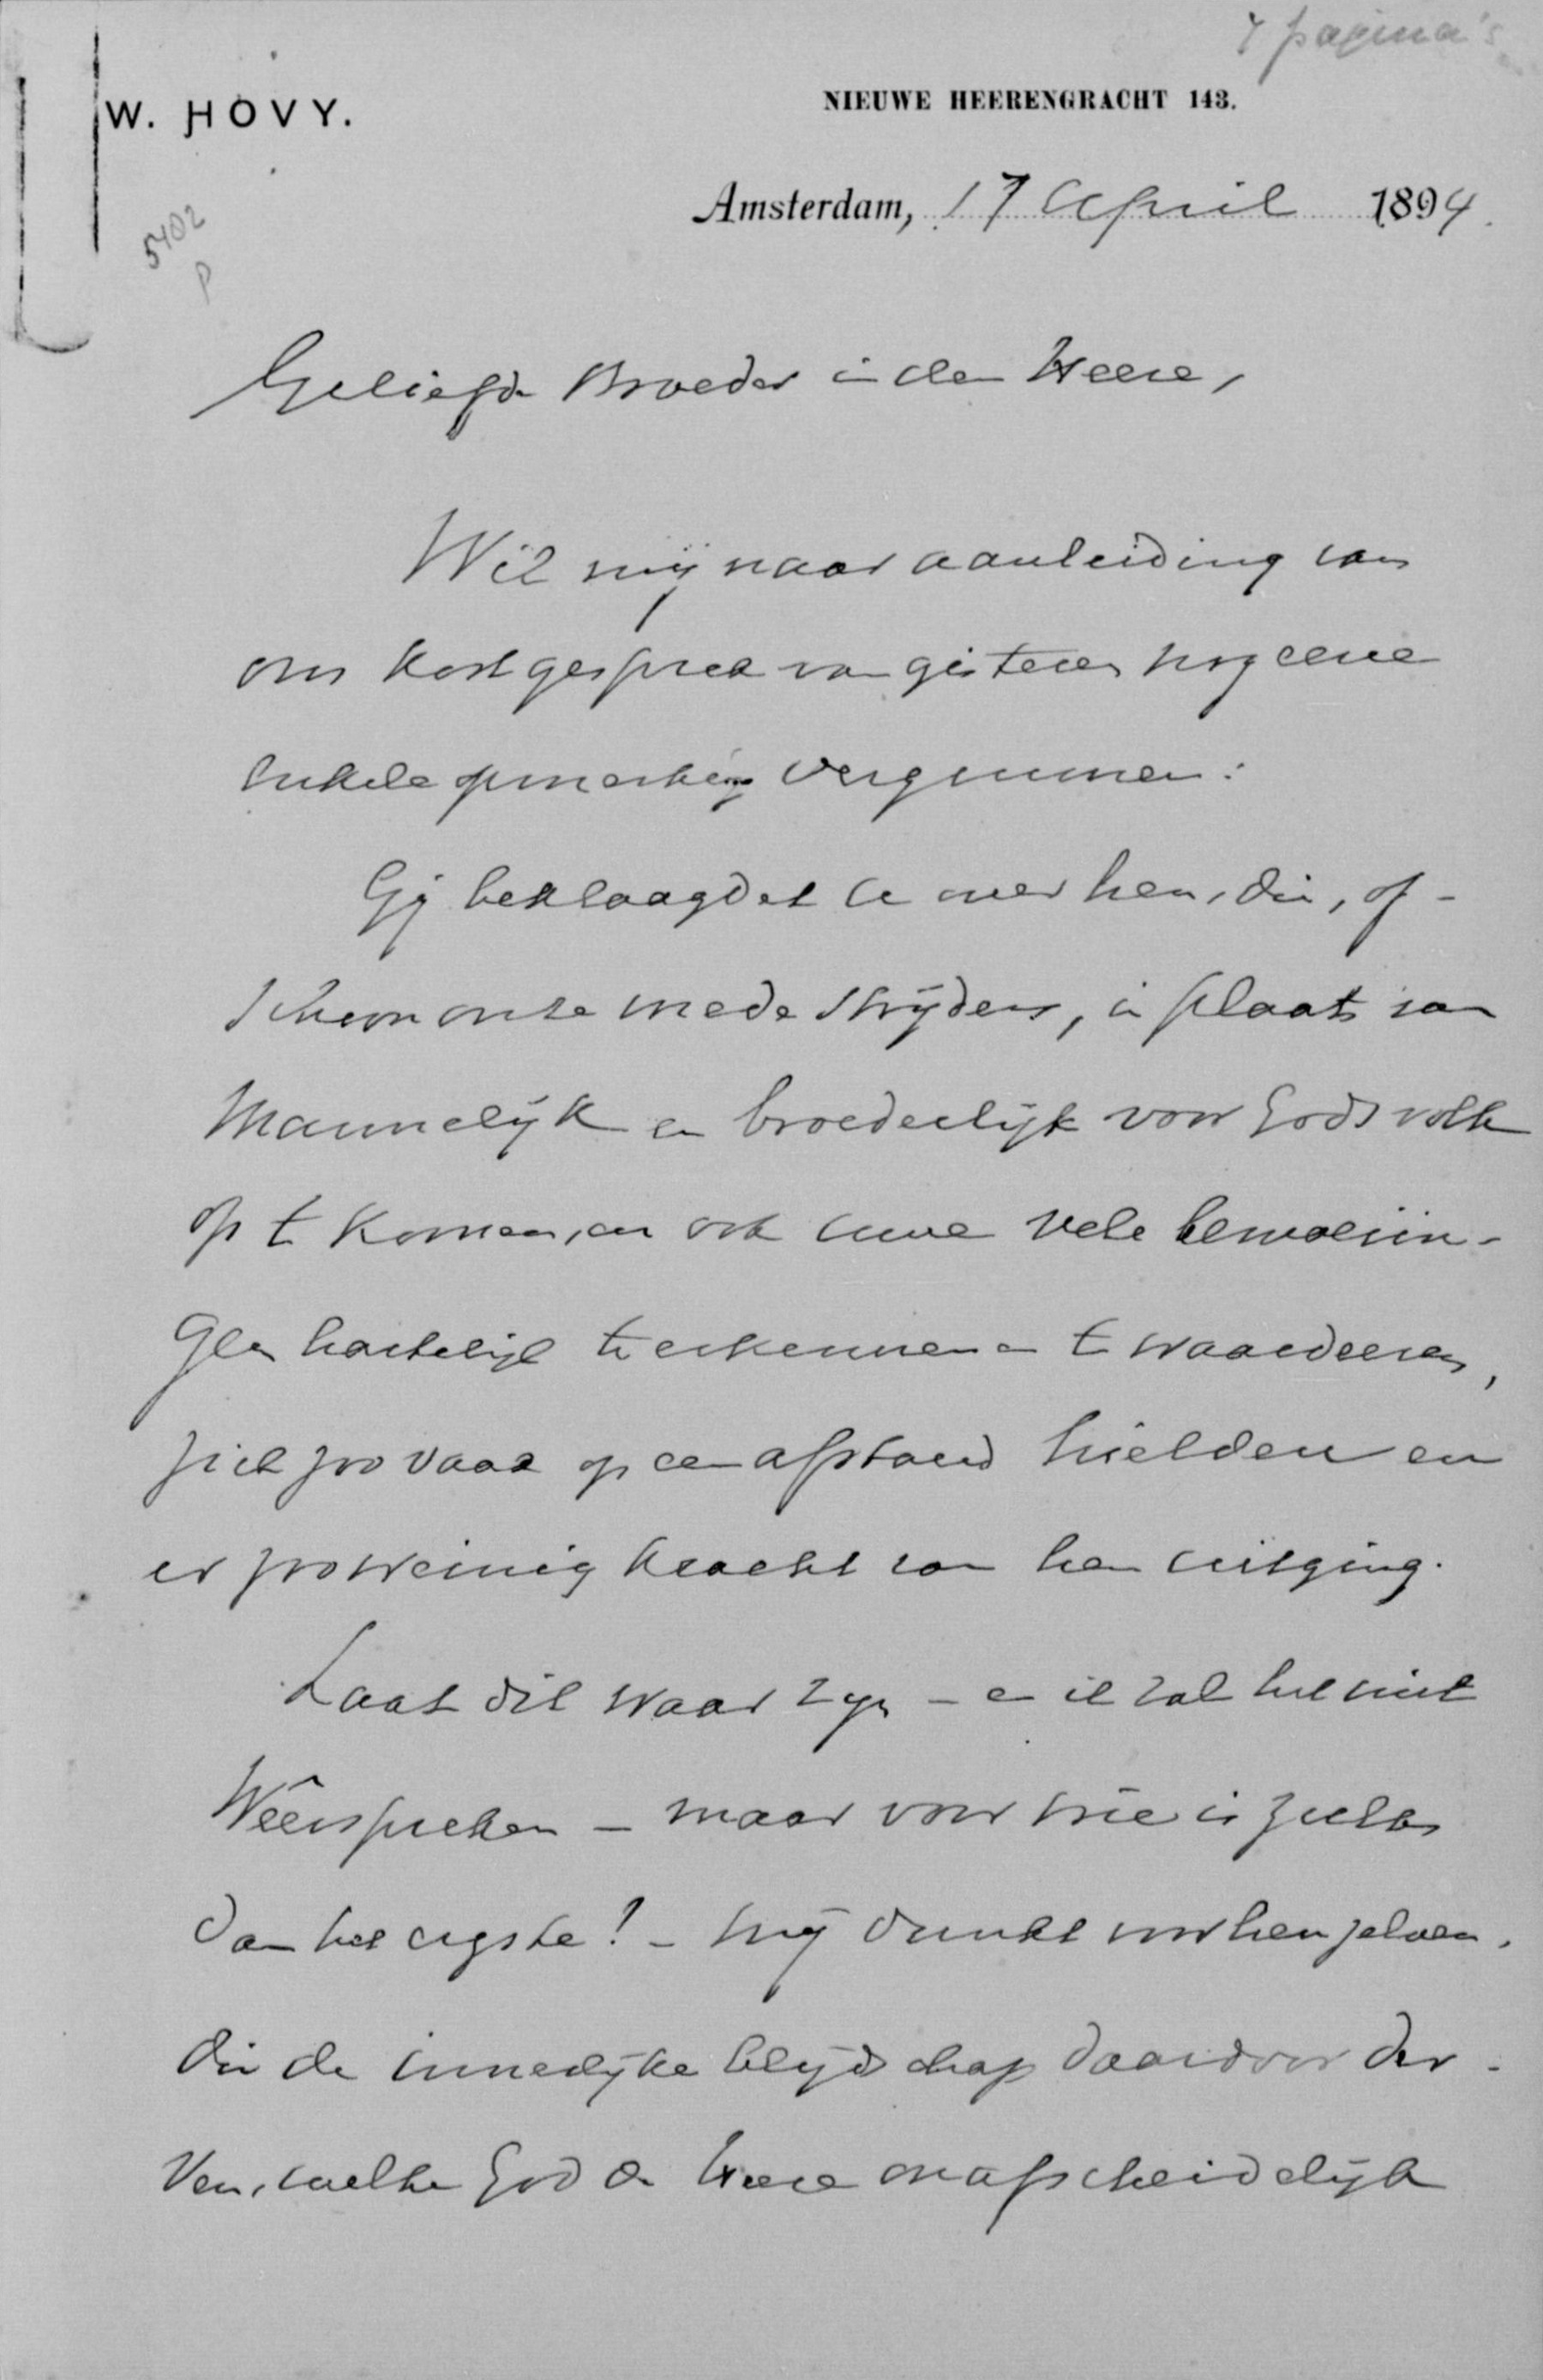 pagina's
W. HOVY.
NIEUWE HEERENGRACHT 143.
Amsterdam, 17 April 1894.
5402
P
Geliefde Broeder in den Heere,
Wil mij naar aanleiding van
ons kort gesprek van gisteren nog eene
enkele opmerking vergunnen:
Gij beklaagdet U over hen, die, of-
schoon onze mede strijders, in plaats van
Mannelijk en broederlijk voor Gods volk
op te komen, en ook uwe vele bemoeiin-
gen hartelijk te erkennen en te waardeeren,
zich zoo vaak op een afstand hielden en
er zoo weinig kracht van hen uitging.
Laat dit waar zijn - en ik zal het niet
Wêerspreken - maar voor wie is zulks
dan het ergste! - Mij dunkt voor hen zelven,
die de innerlijke blijdschap daardoor der-
ven, welke God de Heere onafscheidelijk